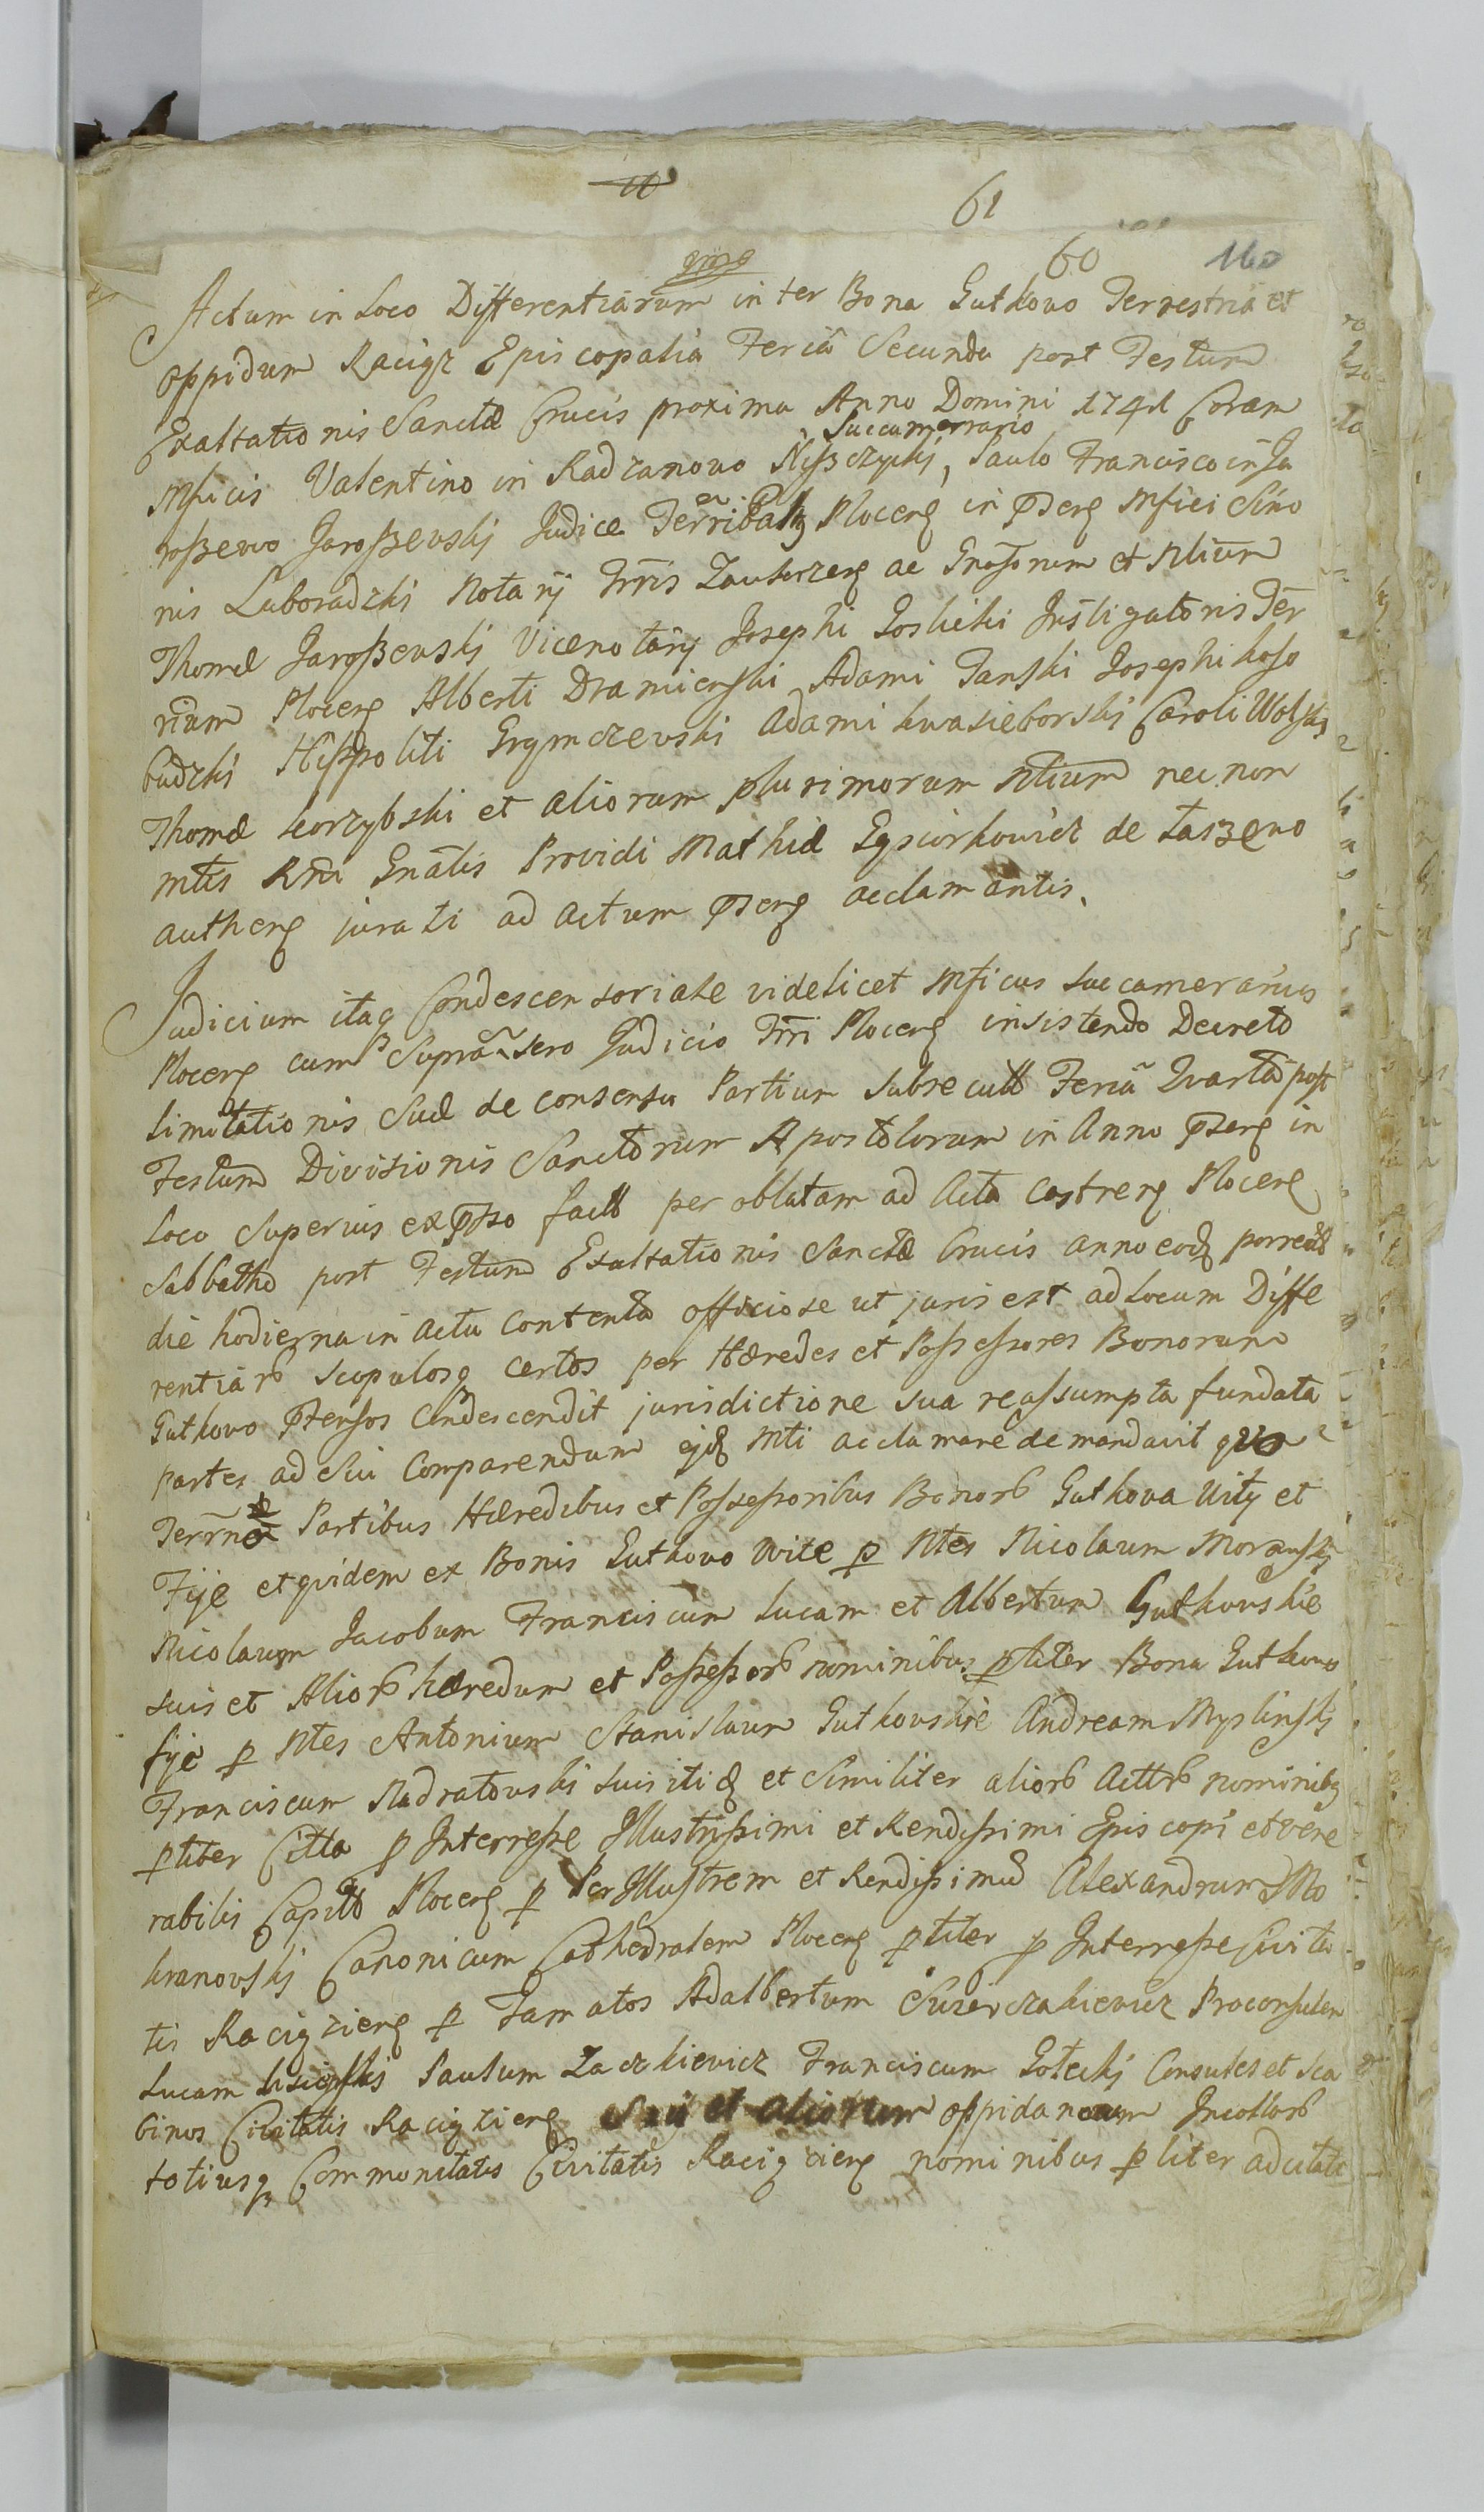 61
60 160
Actum in Loco Differentiarum inter Bona Gutkovo Terrestria et
oppidum Raciąz Episcopalia Feria Secunda post Festum
Exaltationis Sanctæ Crucis proxima Anno Domini 1741 Coram
Succamerario
Mficis Valentino in Radzanovo Niszczycki, Paulo Francisco in Ja
roszewo Jaroszevskj Judice Terri Ploceñ in Pñteñ Mfici Simo
nis Luboradzki Notarij Trris Zavkrzeñ ac Gnosorum et Nlium
Thomæ Jaroszevskj Vicenotarij Josephi Goslicki Instigatoris Ter
rium Ploceñ Alberti Dramiński Adami Tanski Josephi koso
budzki Hippoliti Grymczevski Adami kwasieborskj Caroli Wolskj
Thomæ korzybski et aliorum plurimorum Nlium nec non
mtis Rñi Gnãlis Providi Mathiæ Egsiorkovicz de Laszevo
autheñ jurati ad actum Pñteñ acclamantis.
Judicium itaq Condescensoriale videlicet Mficus Succamerarius
Ploceñ cum Supra Judicio Trri Ploceñ insistendo Decreto
limitationis Suæ de consensu Partium subsecutt Feria Quarta post
Festum Divisionis Sanctorum Apostolorum in Anno Pñteñ in
Loco Superius exp̃sso factt per oblatam ad Acta Castreñ Ploceñ
Sabbatho post Festum Exaltationis Sanctæ Crucis anno eod porrectt
die hodierna in actu Contenta officiose ut juris est ad Locum Diffe
rentiarb Scopulosq certos per Hæredes et Possessores Bonorum
Gutkovo Pñtensos Condescendit jurisdictione sua reassumpta fundata
partes ad Sui Comparendum ejd Mti acclamare demandavit quo
Terrnæ Partibus Hæredibus et Possessoribus Bonorb Gutkova Wity et
Fije et quidem ex Bonis Gutkovo Wite p Ntes Nicolaum Moranskj
Nicolaum Jacobum Franciscum Lucam et Albertum Gutkovskie
suis et Aliorb hæredum et Possessorb nominibus p̃liter Bona Gutkovo
fije p Ntes Antonium Stanislaum Gutkovskie Andream Myslinskj
Franciscum Nadratovski suis itid et Similiter aliorb Acttrb nominibq
p̃liter Citta p Interresse Illustrissimi et Rendissimi Episcopi et vene
rabilis Capittt Ploceñ p Per Illustrem et Rendissimu Alexandrum Mo
kranovskj Canonicum Cathedralem Ploceñ p̃liter p Interresse Civita
tis Raciązieñ p Famatos Adalbertum Proconsulem
Lucam Paulum Zackievicz Franciscum Goteckj Consules et Sca
binos Civitatis Raciązieñ Sui et aliorum oppidanorum Incollorb
totiusq Communitatis Civitatis Raciązieñ nominibus p̃liter ad citatt